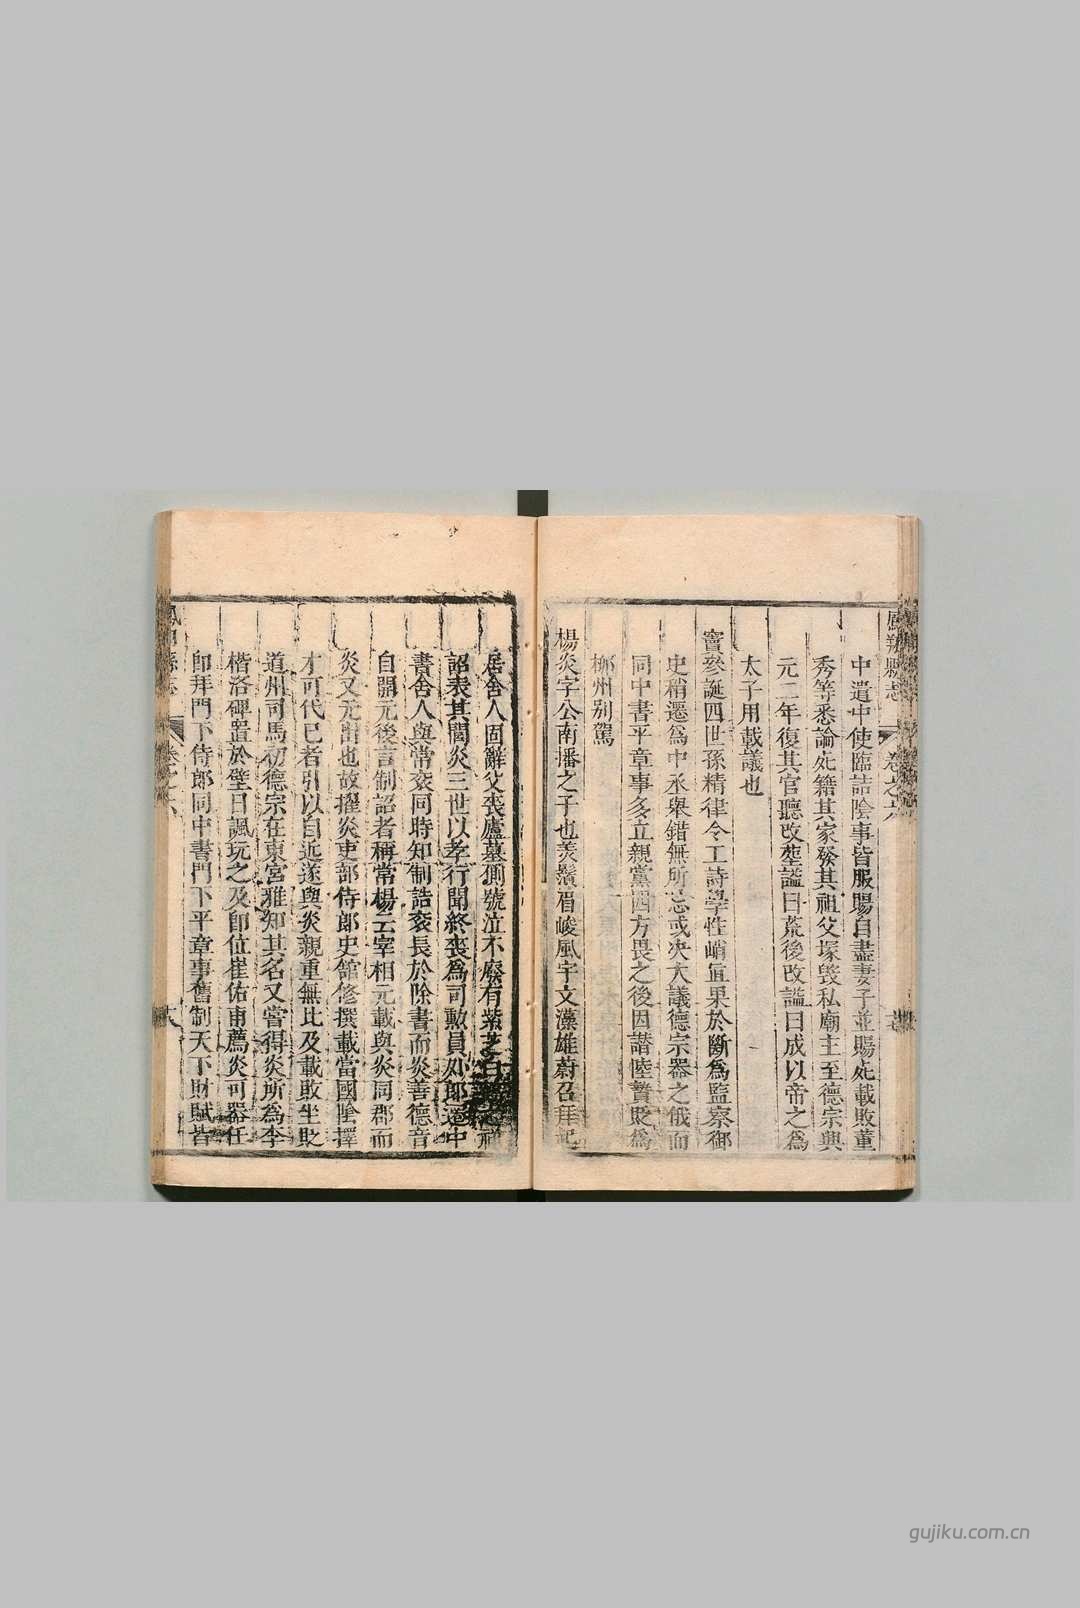 鳳翔縣志 卷之六
中遣中使臨詰隂事皆服賜自盡妻子並賜死載敗董
秀等悉論死籍其家發其祖父塚毁私廟主至德宗興
元二年復其官聽改塟謚曰荒後改謚曰成以帝之爲
太子用載議也
竇參誕四世孫精律令工詩學性峭直果於斷爲監察御
史稍遷爲中丞舉錯無所忌或决大議德宗器之俄而
同中書平章事多立親黨四方畏之後因譖陸贄貶爲
郴州别駕
楊炎字公南播之子也美鬚眉峻風宇文藻雄蔚召拜起
居舍人固辭父喪廬墓側號泣不廢有紫芝白
詔表其閭炎三世以孝行聞終喪爲司勲員外郎遷中
書舍人與常衮同時知制誥衮長於除書而炎善德音
自開元後言制詔者稱常楊云宰相元載與炎同郡而
炎又元出也故擢炎吏部侍郎史館修撰載當國陰擇
才可代已者引以自近遂與炎親重無比及載敗坐貶
道州司馬初德宗在東宮雅知其名又嘗得炎所爲李
楷洛碑置於壁日諷玩之及卽位崔佑甫薦炎可器任
卽拜門下侍郎同中書門下平章事舊制天下財賦皆
縣志 卷之六
gujiku.com.cn